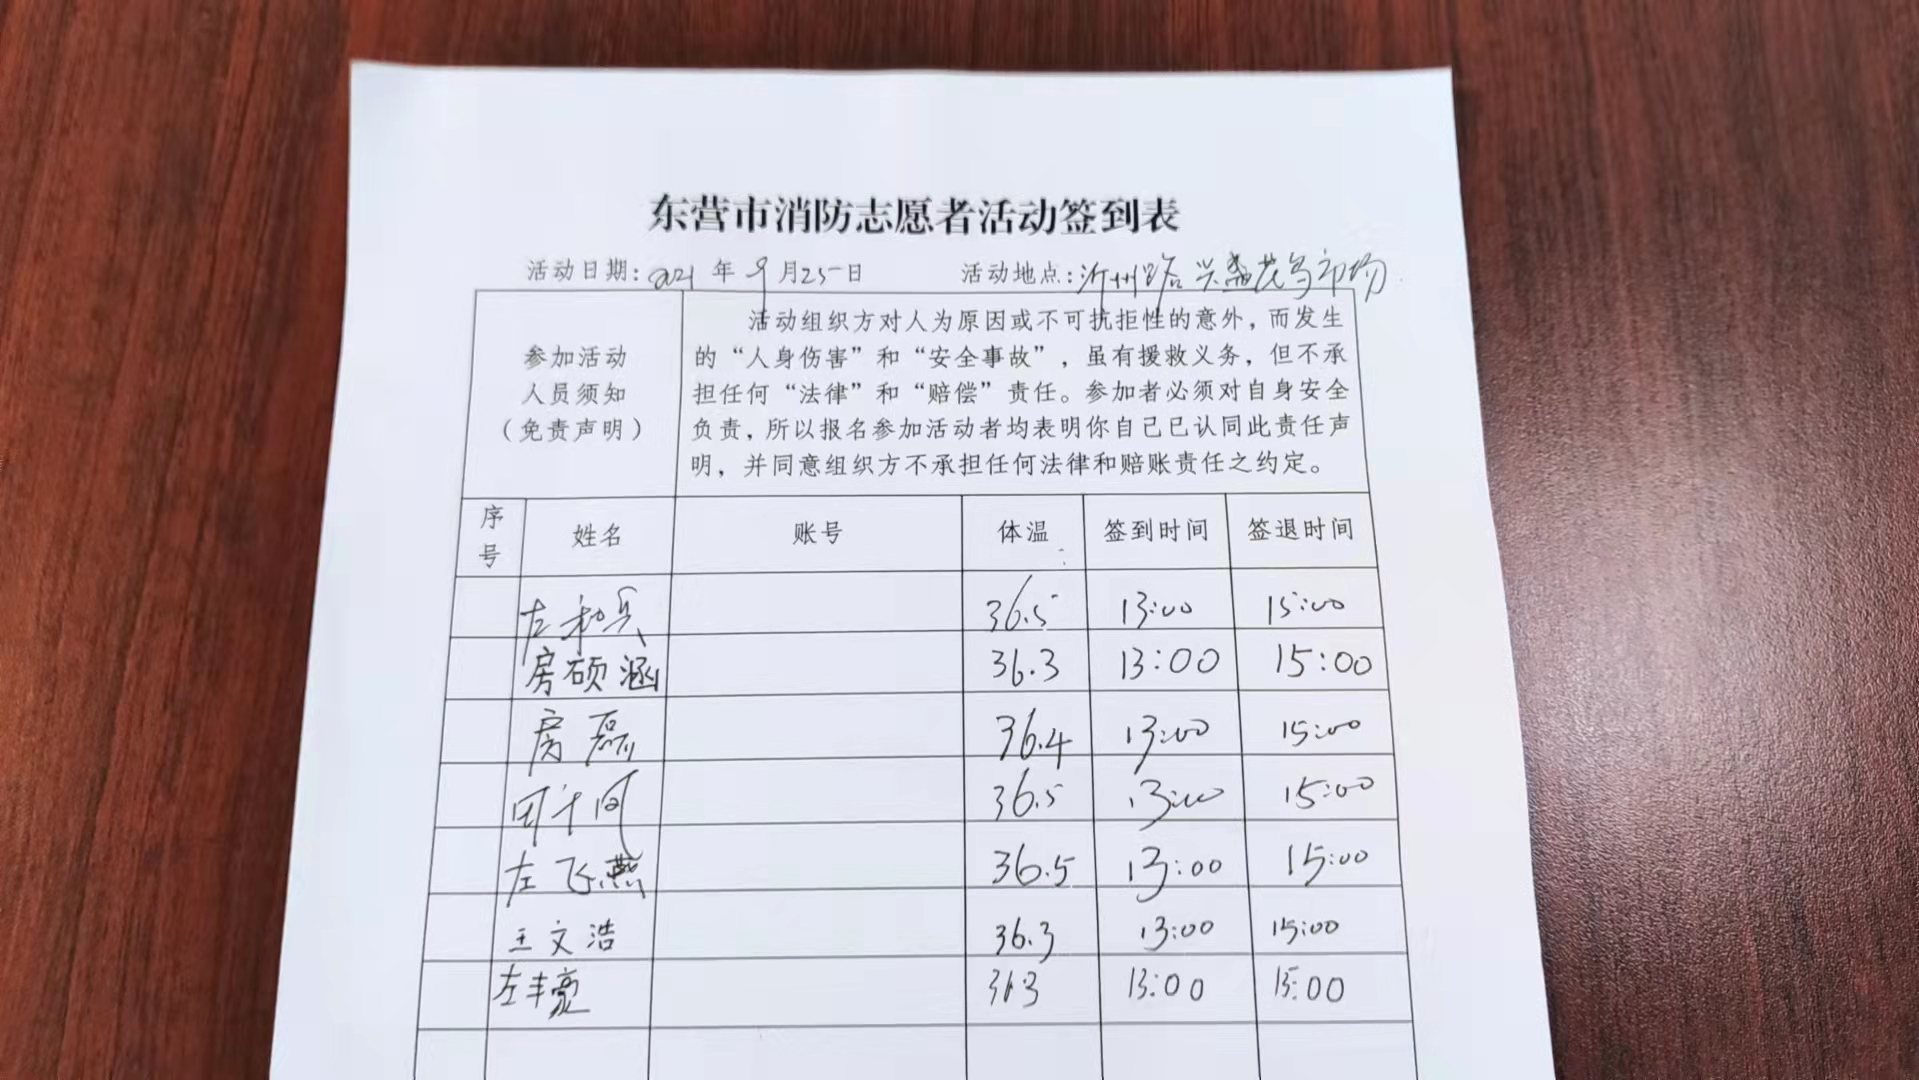 东营市消防志愿者活动签到表
活动日期:2021年9月25日 活动地点:沂州路兴盛花鸟市场
参加活动
人员须知
(免责声明)
活动组织方对人为原因或不可抗拒性的意外,而发生
的“人身伤害”和“安全事故”,虽有援救义务,但不承
担任何“法律”和“赔偿”责任。参加者必须对自身安全
负责,所以报名参加活动者均表明你自己已认同此责任声
明,并同意组织方不承担任何法律和赔账责任之约定。
序号 姓名 账号 体温 签到时间 签退时间
左和兵 36.5 13:00 15:00
房硕涵 36.3 13:00 15:00
房磊 36.4 13:00 15:00
36.5 13:00 15:00
左飞燕 36.5 13:00 15:00
王文浩 36.3 13:00 15:00
左丰豪 13:00 15:00